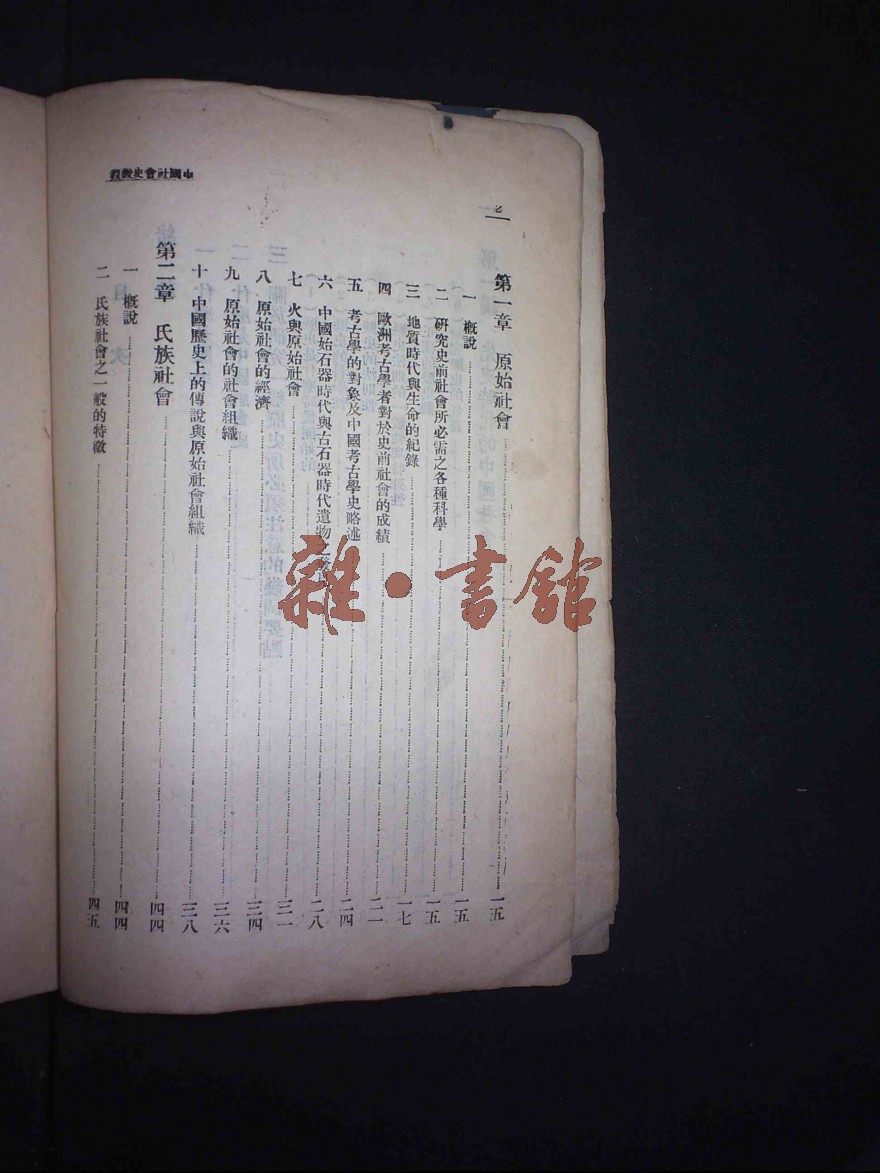 中國社會史教程
二
第一章 原始社會……一五
一 槪說……一五
二 研究史前社會所必需之各種科學……一五
三 地質時代與生命的紀錄……一七
四 歐洲考古學者對於史前社會的成績……二一
五 考古學的對象及中國考古學史略述……二四
六 中國始石器時代與古石器時代遺物之……二八
七 火與原始社會……三一
八 原始社會的經濟……三四
九 原始社會的社會組織……三六
十 中國歷史上的傳說與原始社會組織……三八
第二章 氏族社會……四四
一 槪說……四四
二 氏族社會之一般的特徵……四五
雜·書館